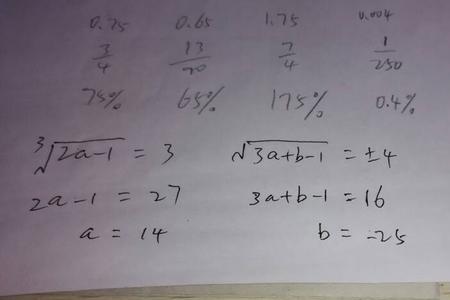 0.75 0.65 1.75 0.004
3/4 13/20 7/4 1/250
75% 65% 175% 0.4%
∛(2a-1) = 3 √(3a+b-1) = ±4
2a-1 = 27 3a+b-1 = 16
a = 14 b = -25